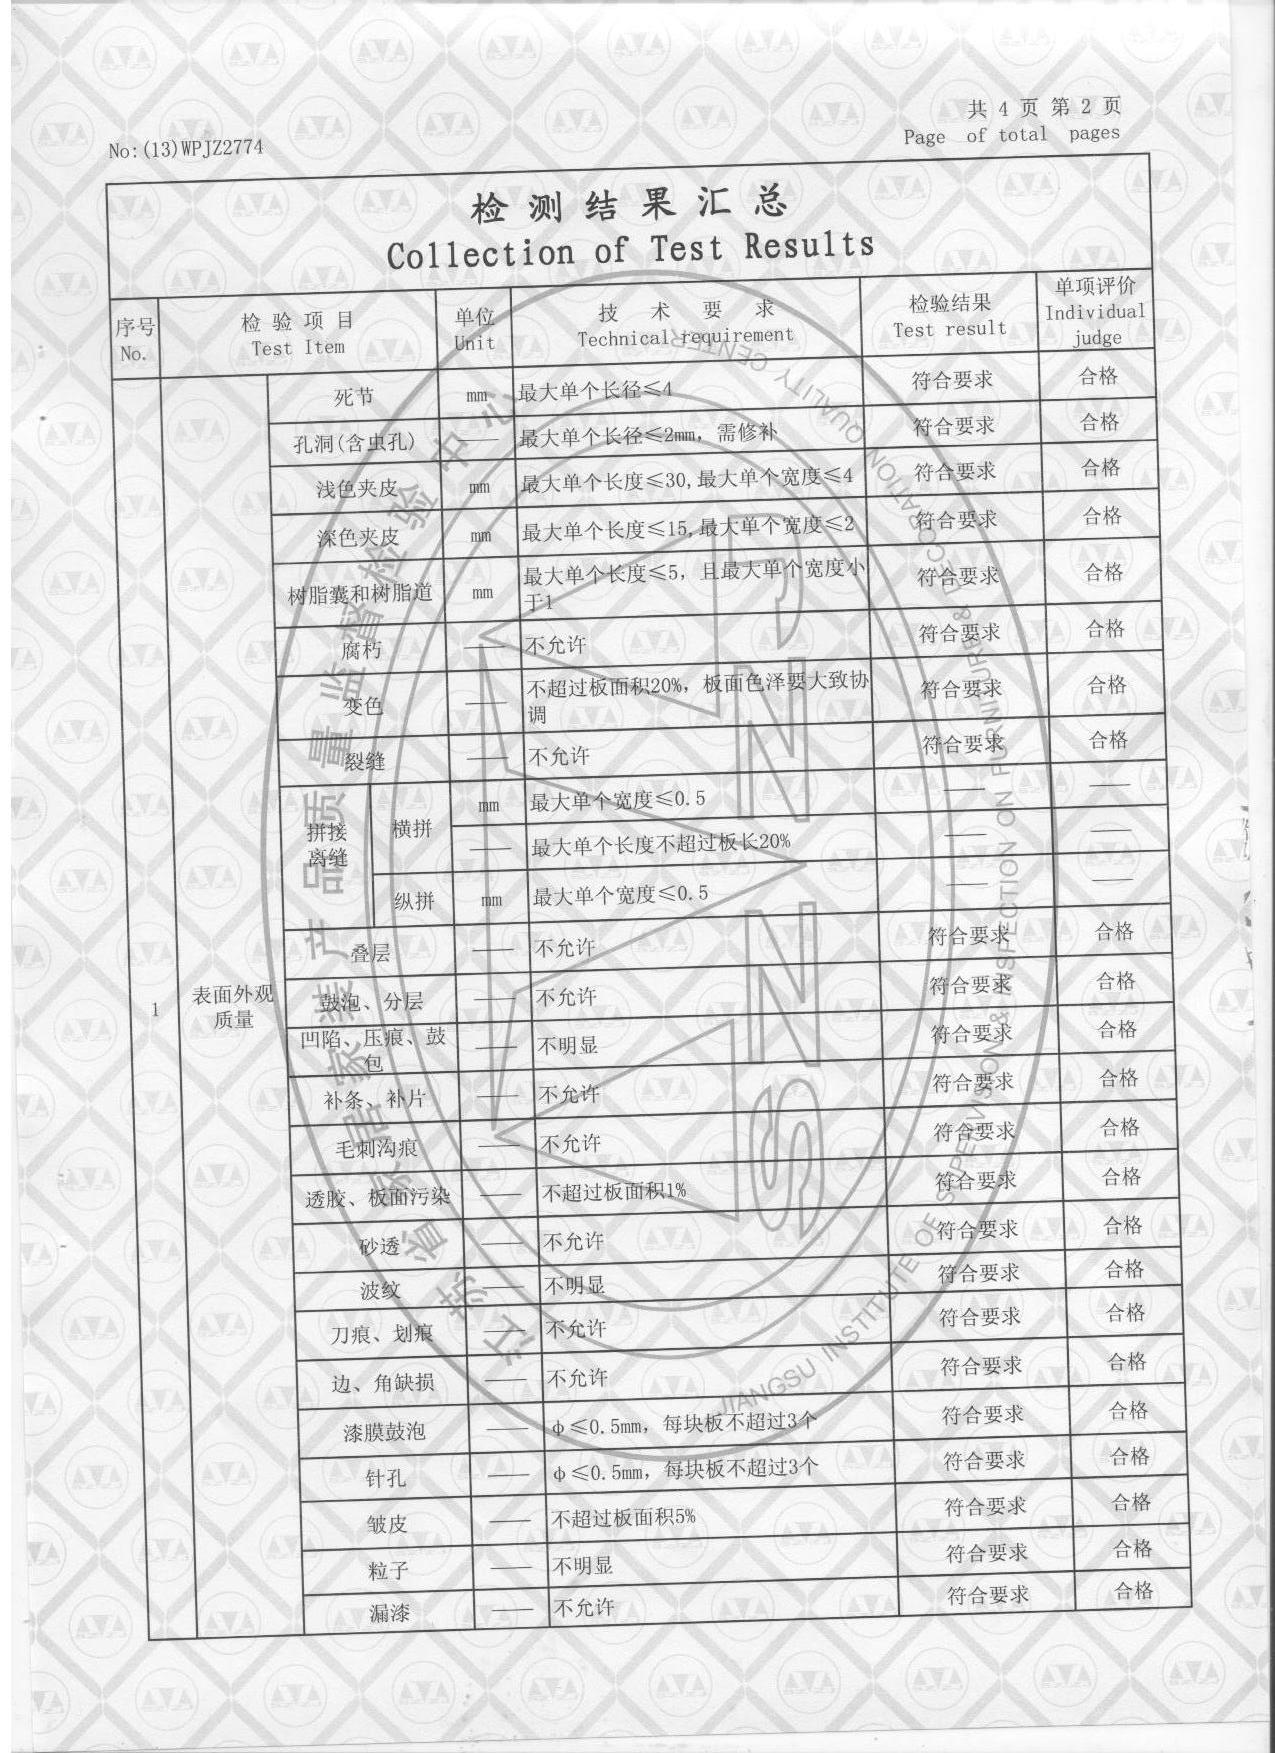 共 4 页 第 2 页
No:(13)WPJZ2774
Page of total pages
检测结果汇总
Collection of Test Results
序号 检验项目 单位 技术要求 检验结果 单项评价
No. Test Item Unit Technical requirement Test result Individual judge
1 表面外观质量
死节 mm 最大单个长径≤4 符合要求 合格
孔洞(含虫孔) —— 最大单个长径≤2mm，需修补 符合要求 合格
浅色夹皮 mm 最大单个长度≤30,最大单个宽度≤4 符合要求 合格
深色夹皮 mm 最大单个长度≤15,最大单个宽度≤2 符合要求 合格
树脂囊和树脂道 mm 最大单个长度≤5，且最大单个宽度小于1 符合要求 合格
腐朽 —— 不允许 符合要求 合格
变色 —— 不超过板面积20%，板面色泽要大致协调 符合要求 合格
裂缝 —— 不允许 符合要求 合格
拼接离缝 横拼 mm 最大单个宽度≤0.5 —— ——
—— 最大单个长度不超过板长20% —— ——
纵拼 mm 最大单个宽度≤0.5 —— ——
叠层 —— 不允许 符合要求 合格
鼓泡、分层 —— 不允许 符合要求 合格
凹陷、压痕、鼓包 —— 不明显 符合要求 合格
补条、补片 —— 不允许 符合要求 合格
毛刺沟痕 —— 不允许 符合要求 合格
透胶、板面污染 —— 不超过板面积1% 符合要求 合格
砂透 —— 不允许 符合要求 合格
波纹 —— 不明显 符合要求 合格
刀痕、划痕 —— 不允许 符合要求 合格
边、角缺损 —— 不允许 符合要求 合格
漆膜鼓泡 —— φ≤0.5mm，每块板不超过3个 符合要求 合格
针孔 —— φ≤0.5mm，每块板不超过3个 符合要求 合格
皱皮 —— 不超过板面积5% 符合要求 合格
粒子 —— 不明显 符合要求 合格
漏漆 —— 不允许 符合要求 合格
江苏省家居家装产品质量监督检验中心
JIANGSU INSTITUTE OF SUPERVISION & INSPECTION ON FURNITURE & DECORATION QUALITY CENTER